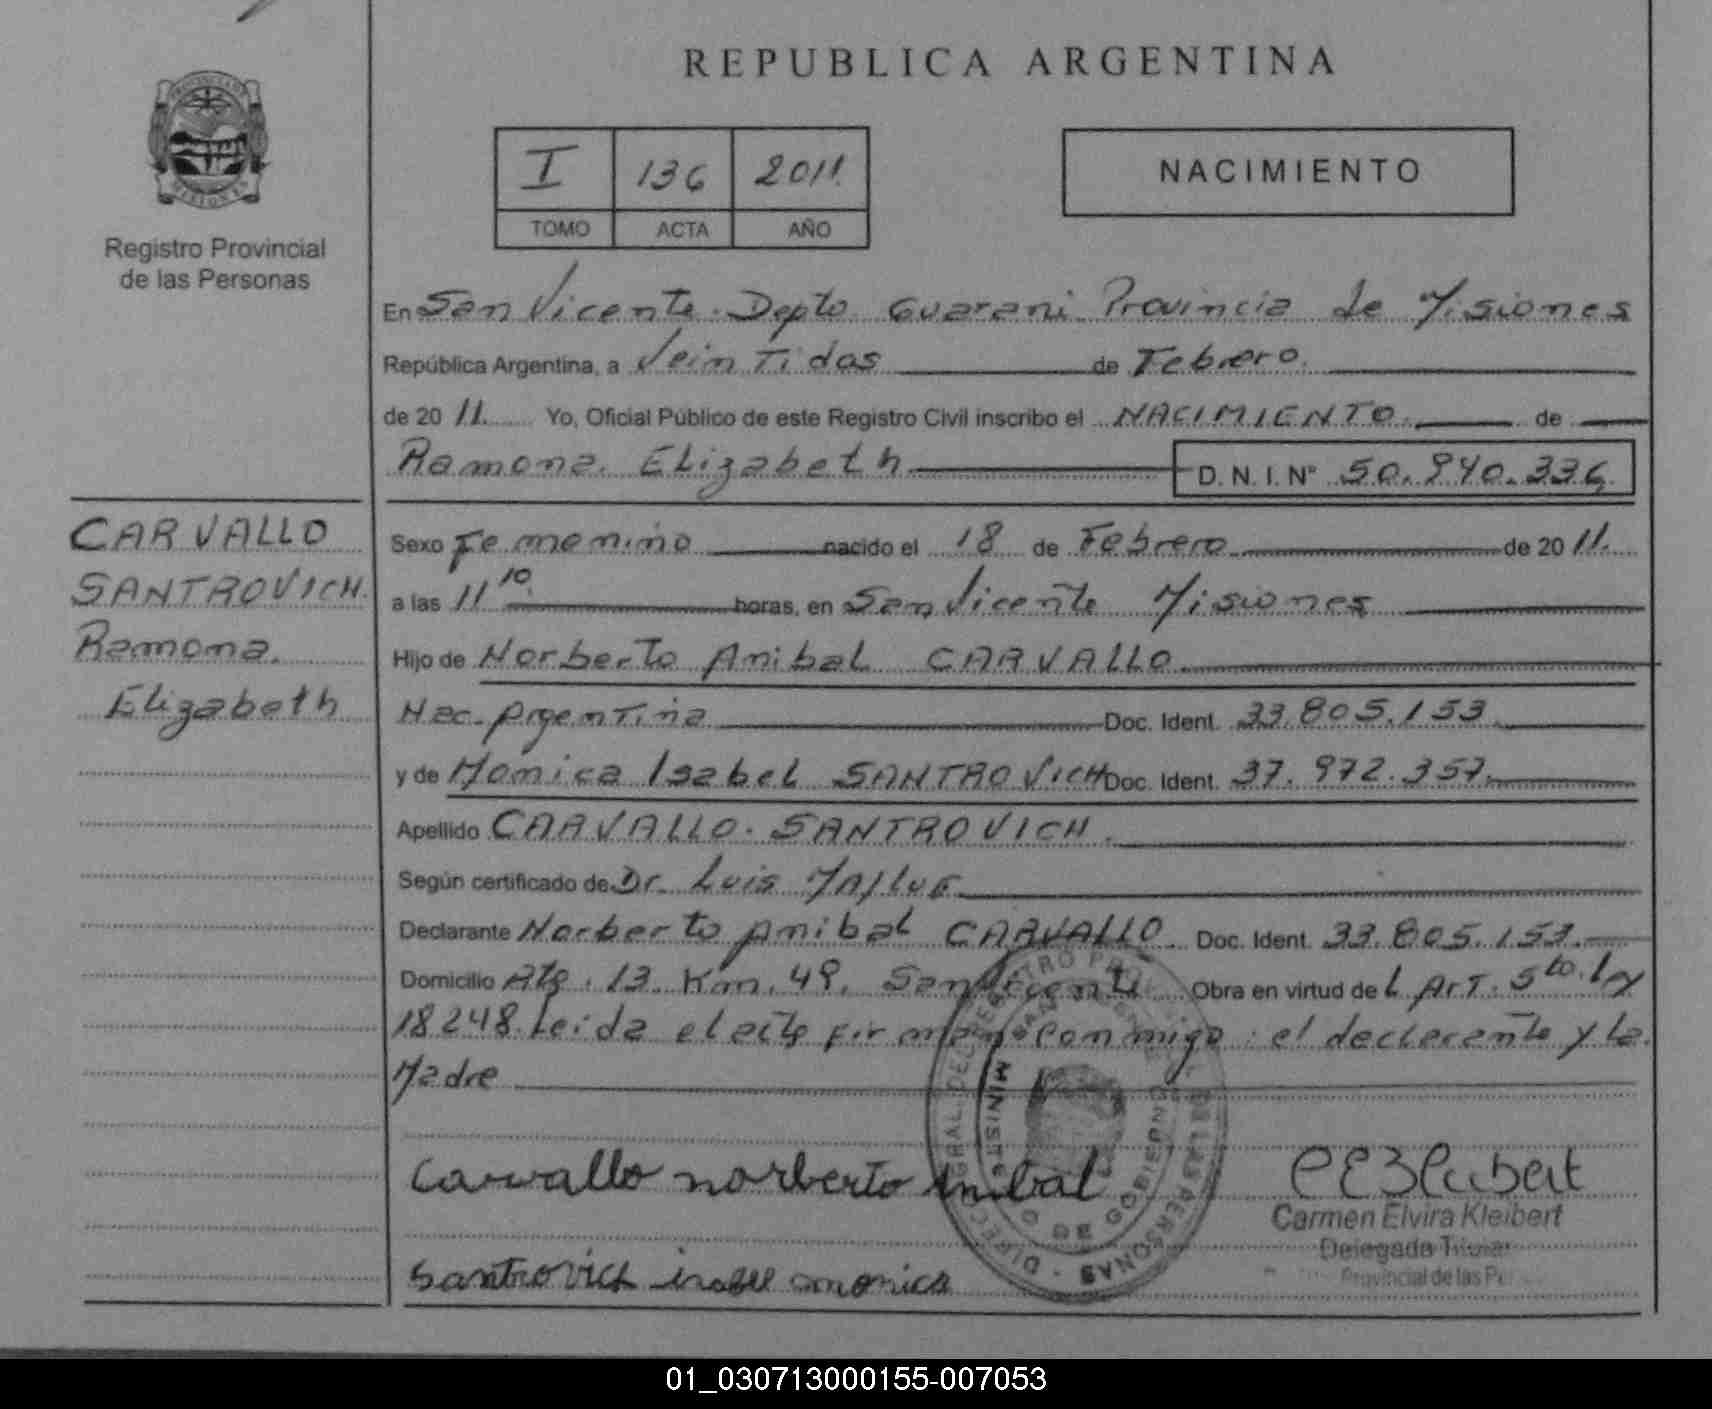 REPUBLICA ARGENTINA
PROVINCIA DE
MISIONES
Registro Provincial
de las Personas
I 136 2011.
TOMO ACTA AÑO
NACIMIENTO
En San Vicente. Depto. Guarani Provincia de Misiones
República Argentina, a Veintidos de Febrero.
de 20 11. Yo, Oficial Público de este Registro Civil inscribo el NACIMIENTO. de
Ramona. Elizabeth. D. N. I. Nº 50.940.336
CARVALLO
SANTROVICH.
Ramona.
Elizabeth
Sexo Femenino nacido el 18 de Febrero de 20 11.
a las 11 10. horas, en San Vicente Misiones
Hijo de Norberto Anibal CARVALLO.
Nac. Argentina Doc. Ident. 33.805.153.
y de Monica Isabel SANTROVICH Doc. Ident. 37.972.357.
Apellido CARVALLO. SANTROVICH.
Según certificado de Dr. Luis
Declarante Norberto Anibal CARVALLO. Doc. Ident. 33.805.153.
Domicilio Km. 49. San Vicente Obra en virtud de l Art. 5to. Ley
18248. Leida el acta firman conmigo: el declarante y la
Madre
Carvallo norberto anibal
Carmen Elvira Kleibert
Delegada Titular
Provincial de las
Santrovich isabel monica
01_030713000155-007053